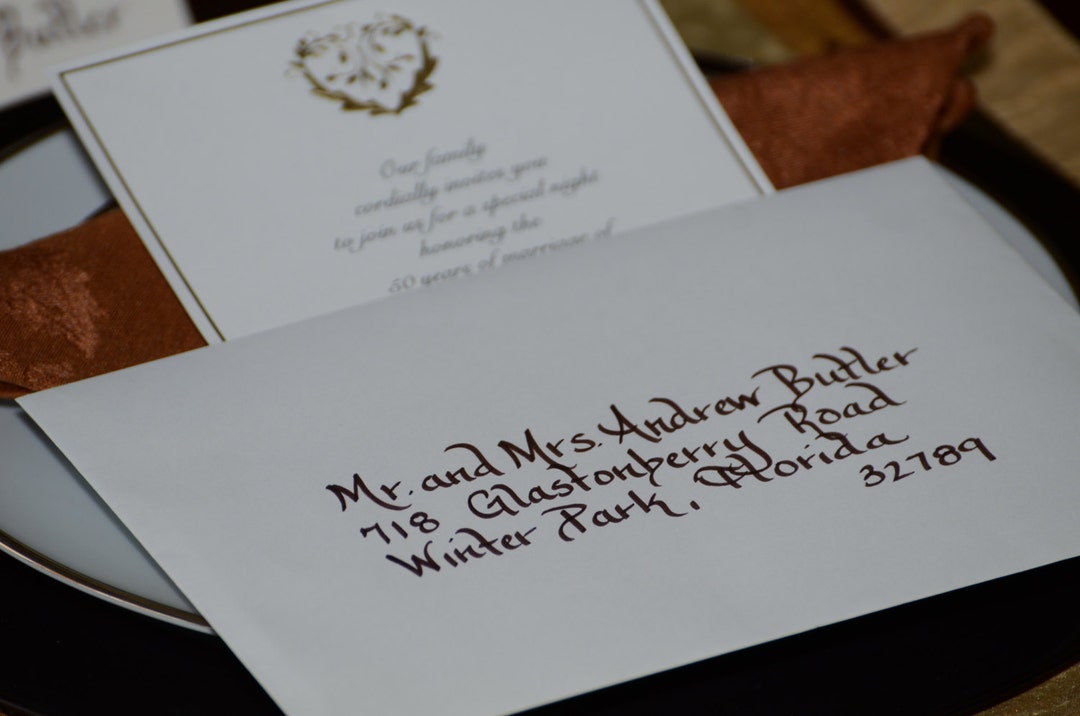 Butler
Our family
cordially invites you
to join us for a special night
honoring the
50 years of marriage of
Mr. and Mrs. Andrew Butler
718 Glastonberry Road
Winter Park, Florida
32789